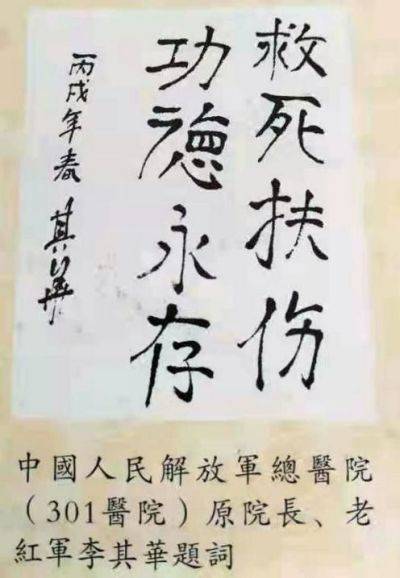 救死扶伤
功德永存
丙戌年春 其华
中國人民解放軍總醫院
（301醫院）原院長、老
紅軍李其華題詞